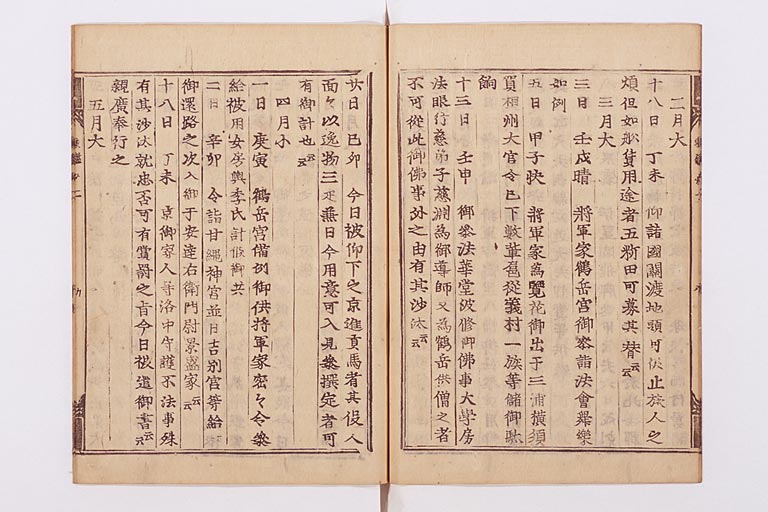 二月大
十八日　丁未　仰諸國關渡地頭可休止旅人之
煩但如舩賃用途者五新田可募其替云云
三月大
三日　壬戌晴　將軍家鶴岳宮御參詣法會舉樂
如例
五日　甲子快　將軍家爲覽花御出于三浦横須
賀相州大官令已下數輩扈從義村一族等儲御駄
餉
十三日　壬申　御參法華堂被修御佛事大學房
法眼行慈弟子慈淵爲御尊師又爲鶴岳供僧之者
不可從此御佛事外之由有其沙汰云云
廿日　己卯　今日被仰下之京進貢馬者其役人
面々以逸物三疋兼日令用意可入見參撰定者可
有御計也云云
四月小
一日　庚寅　鶴岳宮偕例御供將軍家密々令參
給被用女房輿李氏計候御共
二日　辛卯　令詣甘繩神宮並日吉別宮等給
御還路之次入御于安達右衛門尉景盛家云云
十八日　丁未　京御家人等洛中守護不法事殊
有其沙汰就忠否可有賞爵之旨今日被遣御書云云
親廣奉行之
五月大